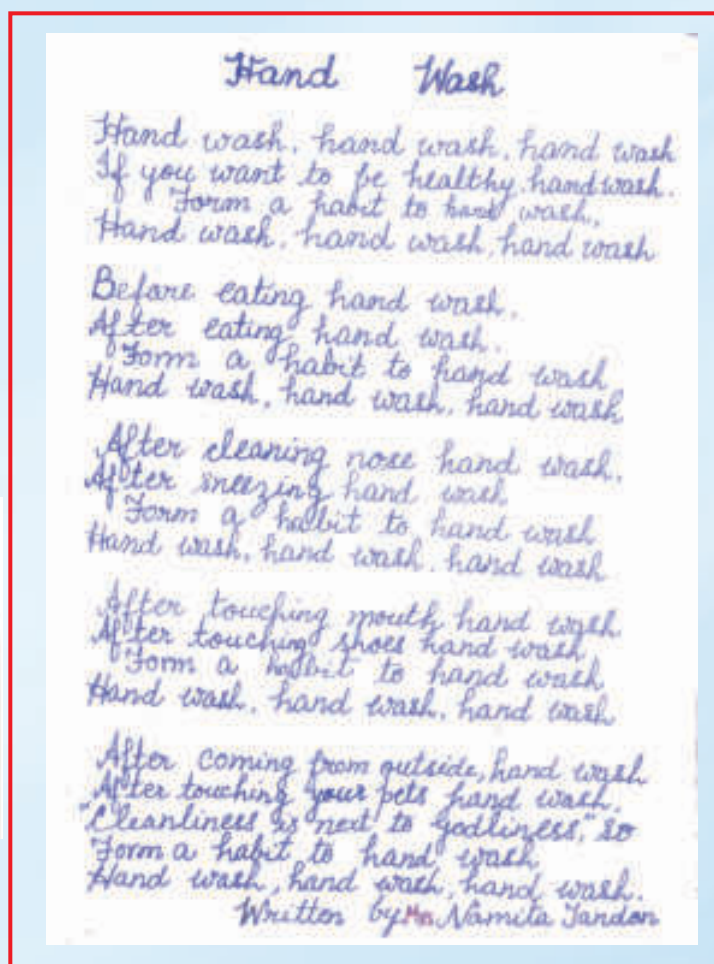 Hand Wash
Hand wash, hand wash, hand wash
If you want to be healthy, handwash.
Form a habit to hand wash,
Hand wash, hand wash, hand wash
Before eating hand wash.
After eating hand wash.
Form a habit to hand wash
Hand wash, hand wash, hand wash
After cleaning nose hand wash.
After sneezing hand wash
Form a habit to hand wash
Hand wash, hand wash, hand wash
After touching mouth hand wash
After touching shoes hand wash
Form a habit to hand wash
Hand wash, hand wash, hand wash
After coming from outside, hand wash
After touching your pets hand wash.
"Cleanliness is next to godliness," so
Form a habit to hand wash
Hand wash, hand wash, hand wash.
Written by Mrs. Namita Tandon